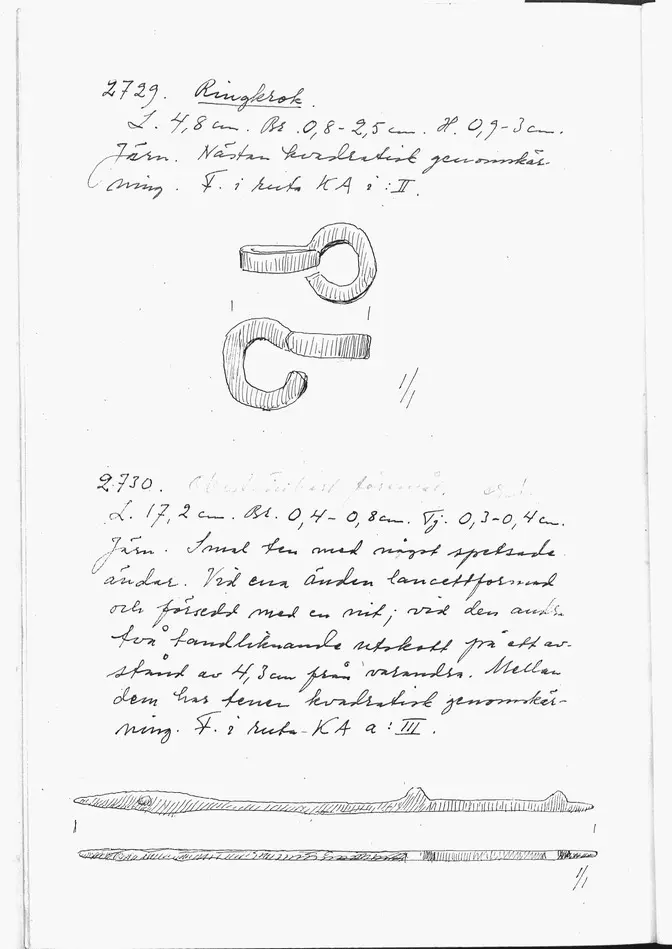 2729. Ringkrok.
L. 4,8 cm. Br. 0,8-2,5 cm. H. 0,9-3 cm.
Järn. Nästan kvadratisk genomskär-
ning. F. i ruta KA i : III.
1/1
2730.
L. 17,2 cm. Br. 0,4-0,8 cm. Tj. 0,3-0,4 cm.
Järn. Smal ten med något spetsade
ändar. Vid ena änden lancettformad
och försedd med en nit; vid den andra
två tandliknande utskott på ett av-
stånd av 4,3 cm från varandra. Mellan
dem har tenen kvadratisk genomskär-
ning. F. i ruta KA a : III.
1/1